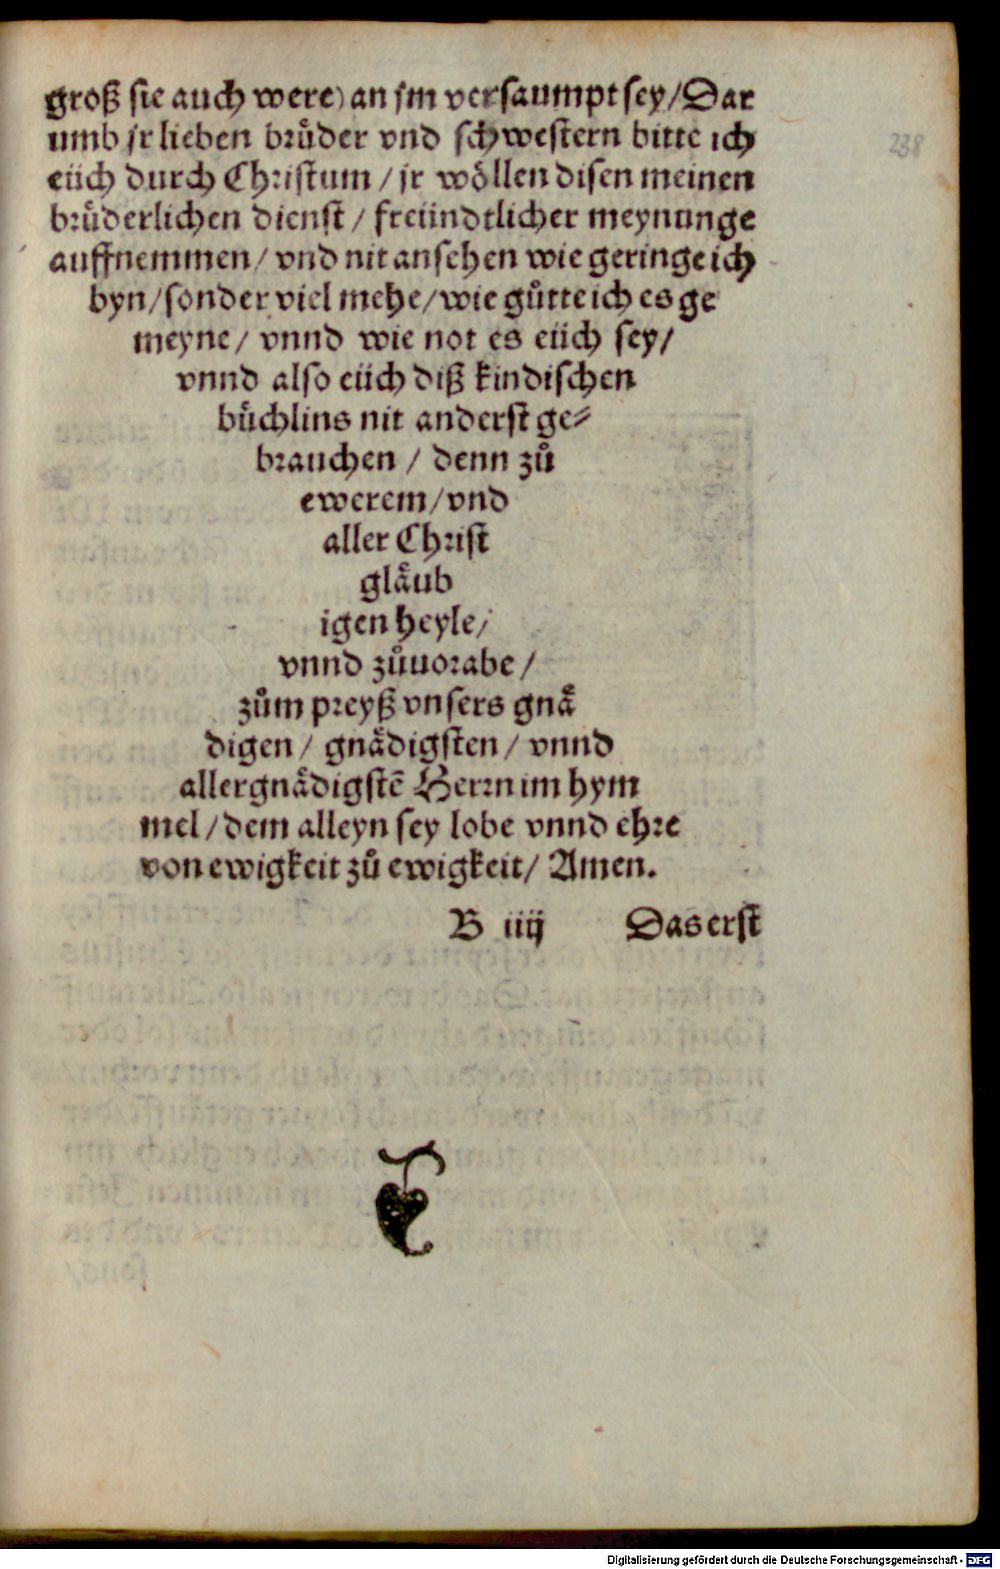 groß sie auch were) an jm versaumpt sey/Dar
umb jr lieben brůder vnd schwestern bitte ich
eüch durch Christum/jr wöllen disen meinen
brůderlichen dienst/freündtlicher meynunge
auffnemmen/vnd nit ansehen wie geringe ich
byn/sonder viel mehe/wie gůtte ich es ge
meyne/vnnd wie not es eüch sey/
vnnd also eüch diß kindischen
bůchlins nit anderst ge⸗
brauchen/denn zů
ewerem/vnd
aller Christ
glaͤub
igen heyle/
vnnd zůuorabe/
zům preyß vnsers gnaͤ
digen/gnaͤdigsten/vnnd
allergnaͤdigstē Herrn im hym
mel/dem alleyn sey lobe vnnd ehre
von ewigkeit zů ewigkeit/Amen.
B iiij Das erst
238
Digitalisierung gefördert durch die Deutsche Forschungsgemeinschaft - DFG